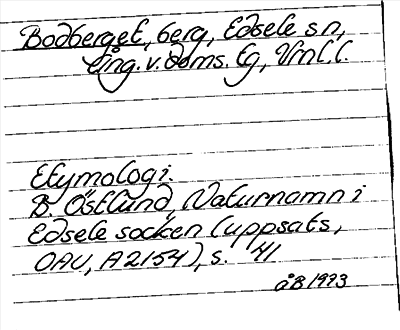 Bodberget, berg, Edsele sn,
Ång. v. doms. tg, Vrnl.l.
Etymologi.
B. Östlund, Naturnamn i
Edsele socken (uppsats,
OAU, A2154), s. 41
åB 1973